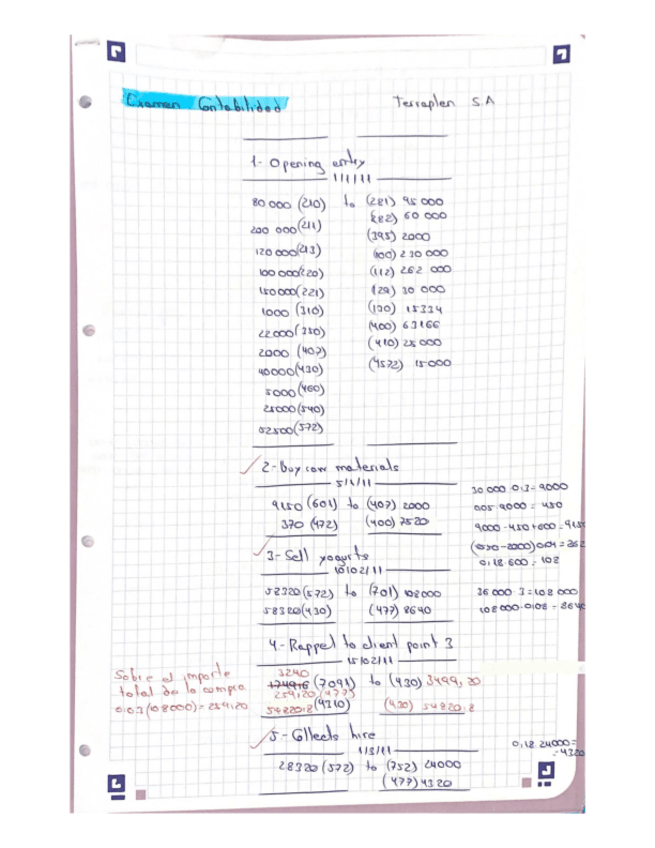 Examen Contabilidad
Terraplen S.A
1- Opening entry
1/1/11
80 000 (210) to (281) 95 000
200 000 (211) (282) 60 000
120 000 (213) (395) 2000
100 000 (220) (100) 230 000
150 000 (221) (112) 262 000
1000 (310) (129) 30 000
22000 (350) (170) 15334
2000 (407) (400) 63166
40000 (430) (410) 25 000
5000 (460) (4572) 15000
25000 (540)
52500 (572)
2- Buy raw materials
5/1/11
9150 (601) to (407) 2000
370 (472) (400) 7520
30 000 · 0,3 = 9000
005 · 9000 = 450
9000 - 450 + 600 = 9150
0,18 · 600 = 108
3- Sell yogurts
10/02/11
58320 (572) to (701) 108000
58320 (430) (477) 8640
36 000 · 3 = 108 000
108 000 · 0,08 = 8640
4- Rappel to client point 3
15/02/11
3240
(709) to (430) 3499,20
259,20 (477)
54820,8 (4310) (430) 54820,8
Sobre el importe
total de la compra
0,03 (108000) = 259,20
5- Collects hire
1/3/11
28320 (572) to (752) 24000
(477) 4320
0,18 · 24000 =
= 4320